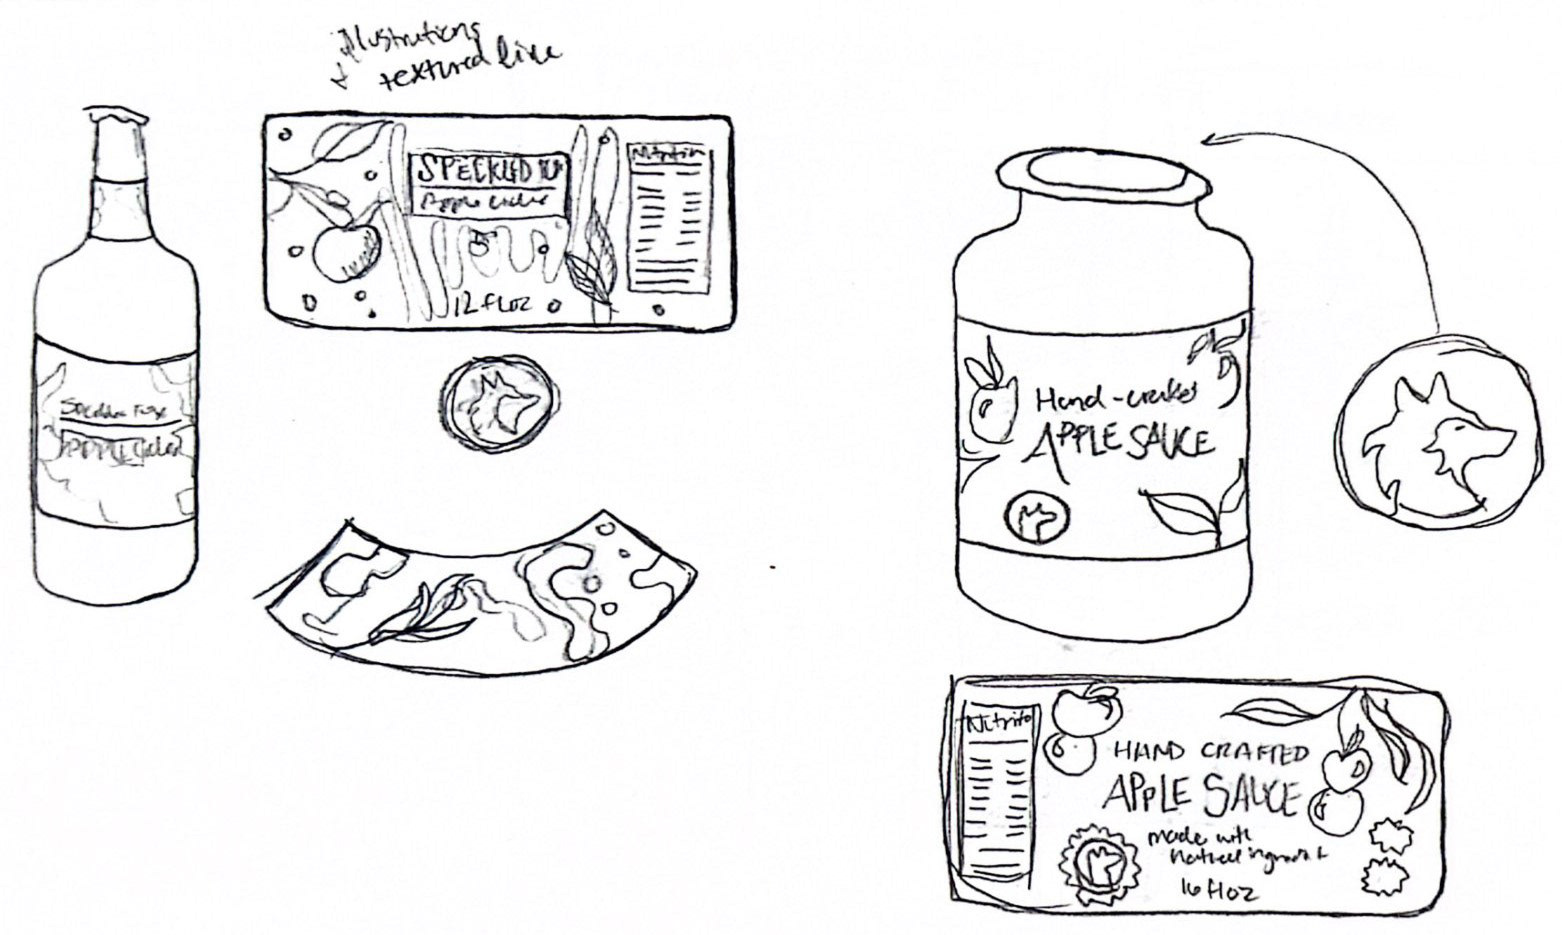 illustrations
textured line
SPECKLED
Apple
Nutrition
12 fl oz
Apple
Hand-crafted
APPLE SAUCE
Nutrito
HAND CRAFTED
APPLE SAUCE
made with
natural ingredient
16 fl oz